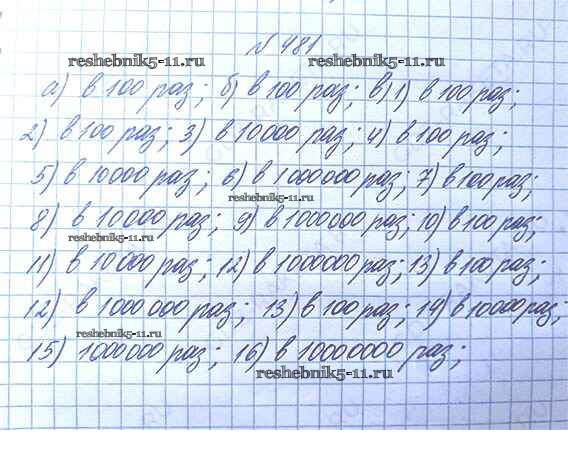 № 481
reshebnik5-11.ru reshebnik5-11.ru
а) в 100 раз; б) в 100 раз; в) 1) в 100 раз;
2) в 100 раз; 3) в 10000 раз; 4) в 100 раз;
5) в 10000 раз; 6) в 1000000 раз; 7) в 100 раз;
reshebnik5-11.ru
8) в 10000 раз; 9) в 1000000 раз; 10) в 100 раз;
reshebnik5-11.ru
11) в 10000 раз; 12) в 1000000 раз; 13) в 100 раз;
12) в 1000 000 раз; 13) в 100 раз; 14) в 10000 раз;
reshebnik5-11.ru
15) 1000000 раз; 16) в 10000000 раз;
reshebnik5-11.ru